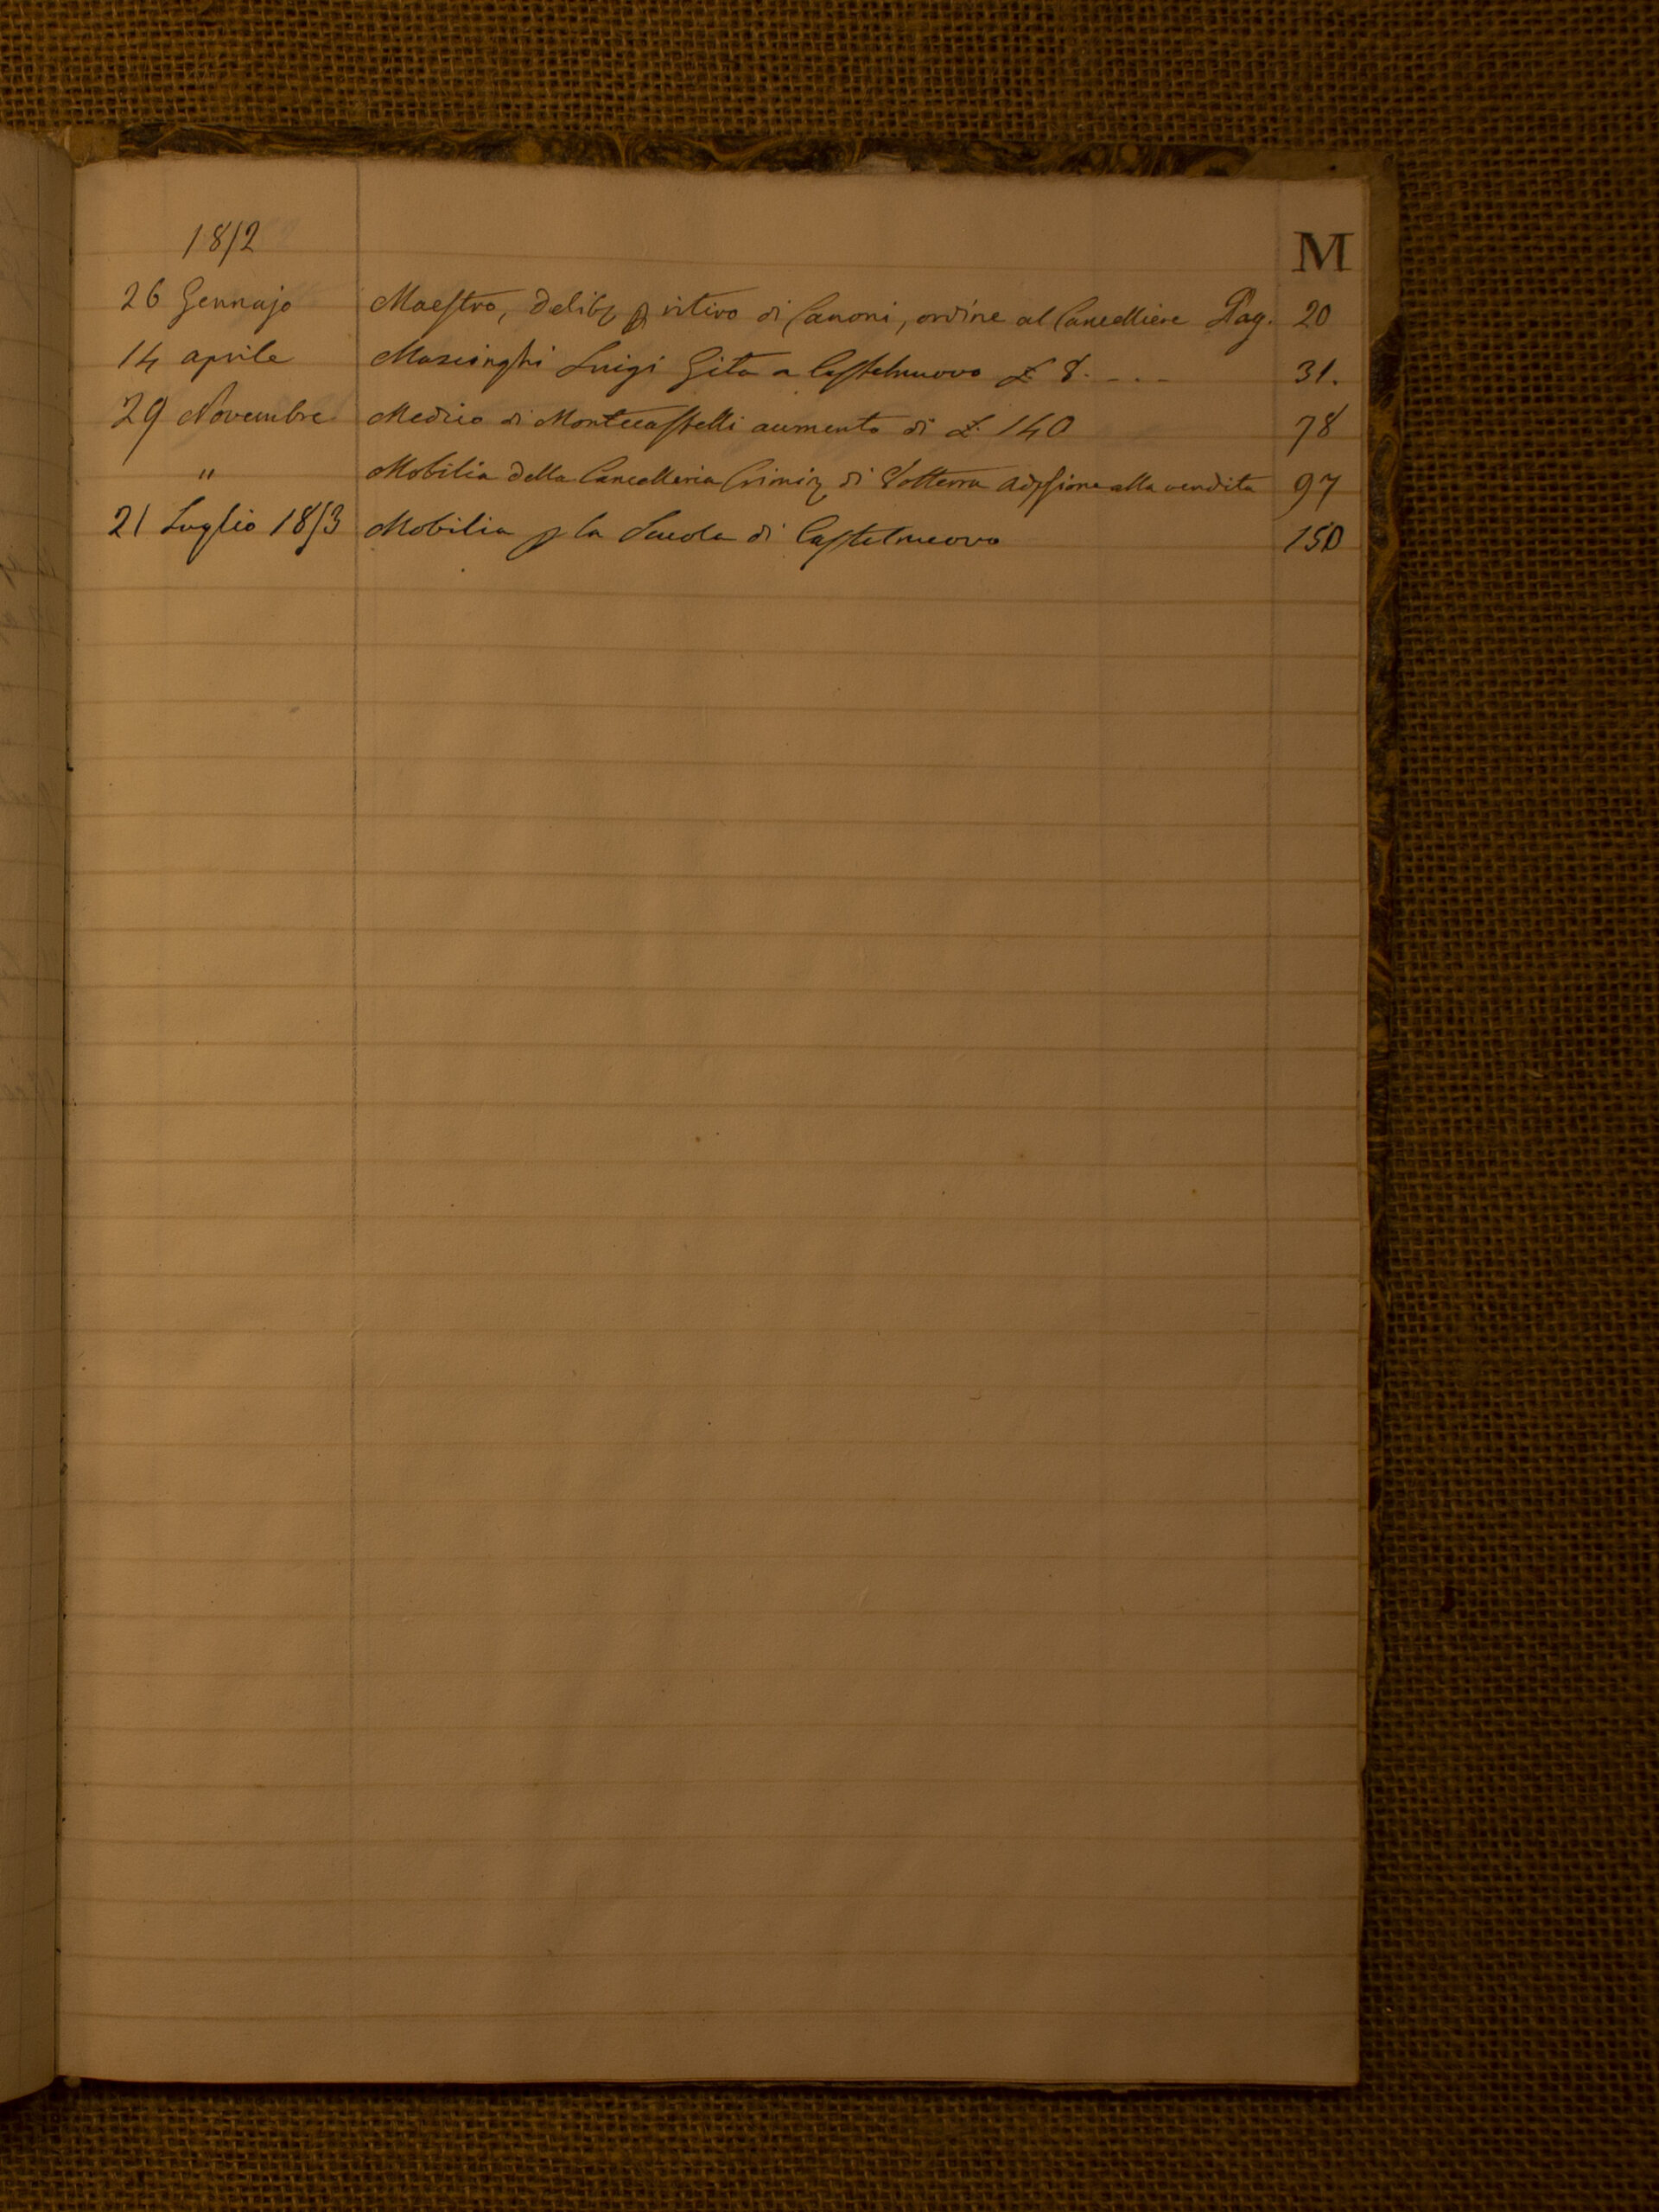 1852 M
26 Gennajo Maestro, Delibe p ritiro di Canoni, ordine al Cancelliere Pag. 20
14 aprile Luigi Gita a Castelnuovo £ 8. - - - 31.
29 Novembre Medico di Montecastelli aumento di £ 140 78
" Mobilia della Cancelleria Crimin di Volterra adesione alla vendita 97
21 Luglio 1853 Mobilia p la Scuola di Castelnuovo 150